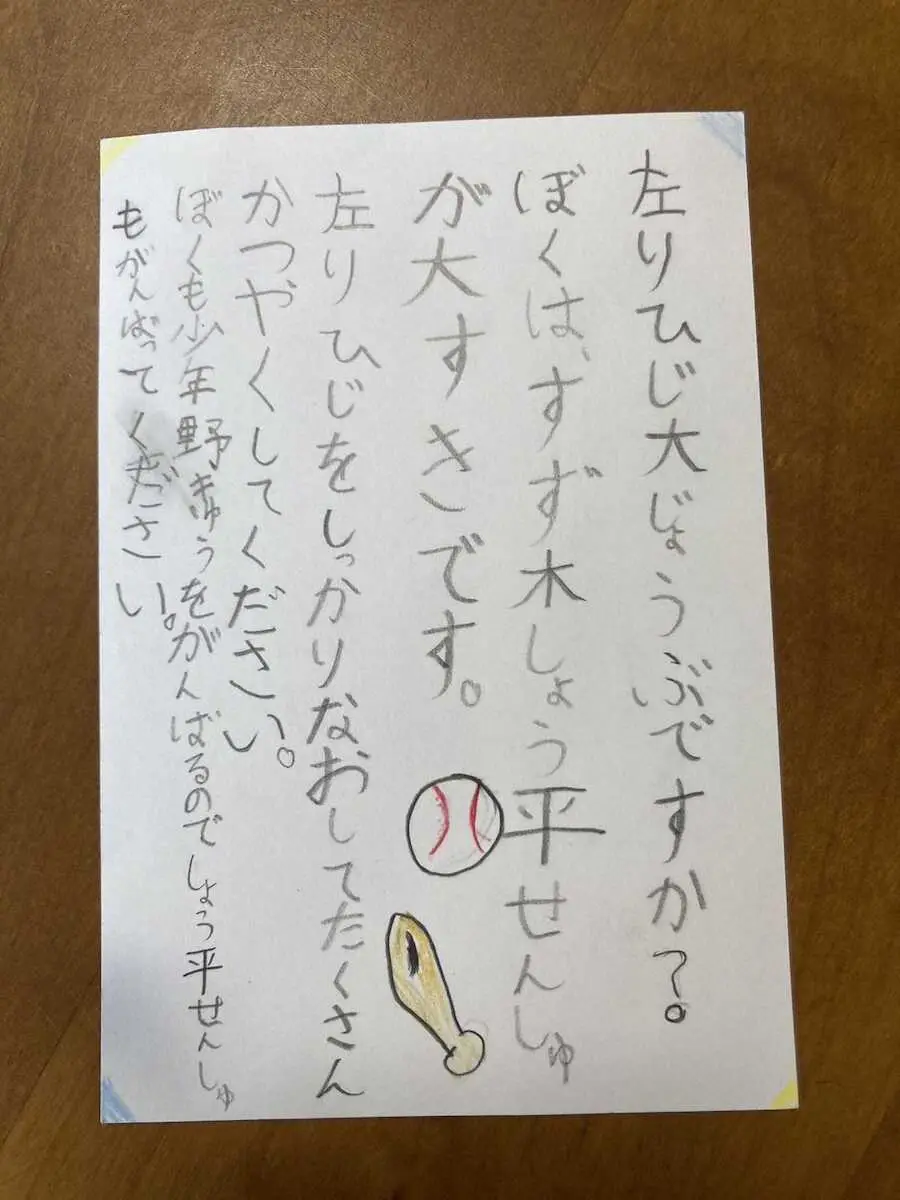 左りひじ大じょうぶですか?。
ぼくは、すず木しょう平せんしゅ
が大すきです。
左りひじをしっかりなおしてたくさん
かつやくしてください。
ぼくも少年野きゅうをがんばるのでしょう平せんしゅ
もがんばってください。